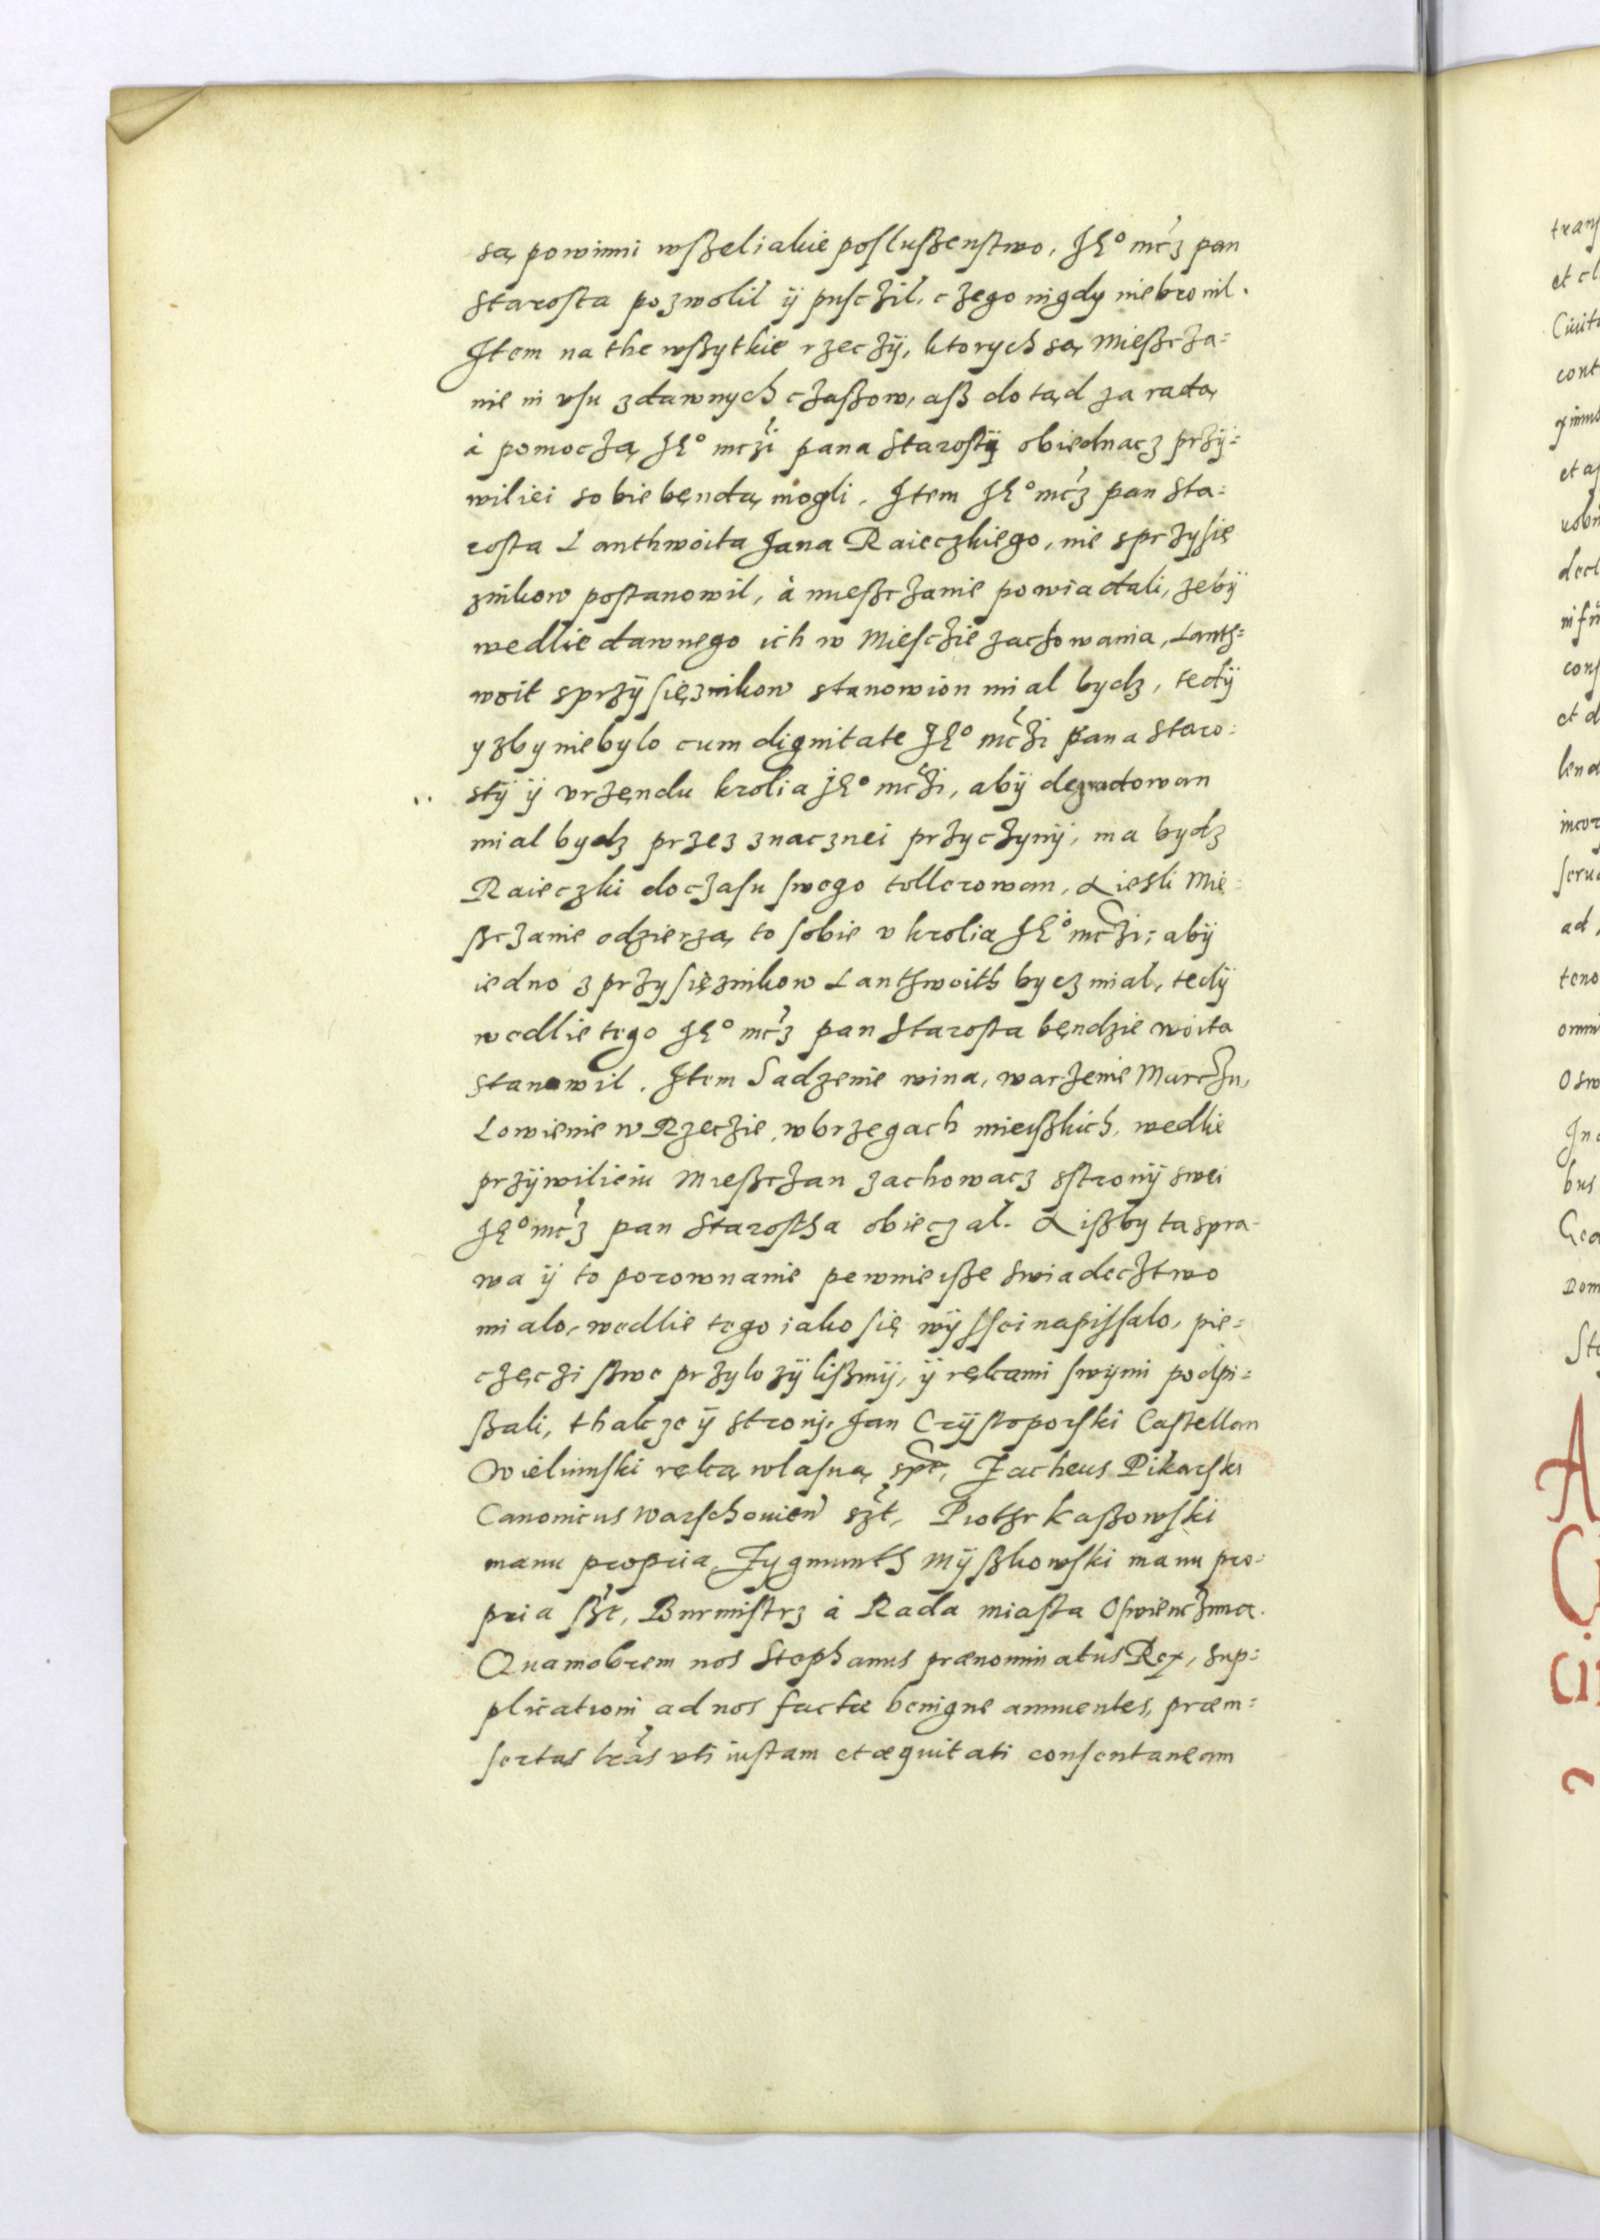 są powinni wßeliakie posłußenstwo, JE° mćz pan
Starosta pozwolił ÿ pusczil, czego nigdy niebronil.
Item na the wßytkie rzeczÿ, ktorych są Mießcza=
nie in vsu zdawnych czaßow, aß do tąd za radą
à pomoczą JE° mczi pana Starostÿ obiednacz przÿ=
wiliei sobie bęndą mogli. Item JE° mćz pan Sta=
rosta Lanthwoita Jana Raieczkiego, nie sprzysię
znikow postanowil, à mießczanie powiadali, zebÿ
wedlie dawnego ich w Miesczie zachowania, Lanth=
woit sprzÿsięznikow stanowion mial bydz, tedÿ
yzby niebylo cum dignitate JE° mczi pana Staro=
stÿ ÿ vrzęndu krolia JE° mczi, abÿ degradowan
mial bydz przez znacznei przyczynÿ, ma bydz
Raieczki do czasu swego tollerowan, A iesli Mie=
ßczanie odzierzą to sobie v krolia JE° mczi; abÿ
iedno z przysięznikow Lanthwoith bycz mial, tedÿ
wedlie tego JE° mćz pan Starosta bęndzie woita
stanowil. Item Sadzenie wina, warzenie Marczu,
Lowienie w Rzeczie, w brzegach mieiskich, wedlie
przÿwilieiu Mießczan zachowacz sstronÿ swei
JE° mćz pan Starostha obieczał. A ißby ta spra=
wa ÿ to porownanie pewnieiße swiadecztwo
mialo, wedlie tego iako się wÿssei napissalo, pie=
częczi ßwe przylozÿlißmÿ, ÿ rękami swÿmi podpi=
ßali, thakze ÿ stronÿ. Jan Crÿstoporski Castellan
Wielunski ręką wlasną spt, Zacheus Pikarski
Canonicus Warschouien szt, Piothr Kaßowski
manu propria, Zygmunth Mÿßkowski manu pro=
pria ßzt, Burmistrz à Rada miasta Oswienczima.
Quamobrem nos Stephanus prænominatus Rex, sup=
plicationi ad nos factæ benigne annuentes, præin=
sertas lras vti iustam et æquitati consentaneam